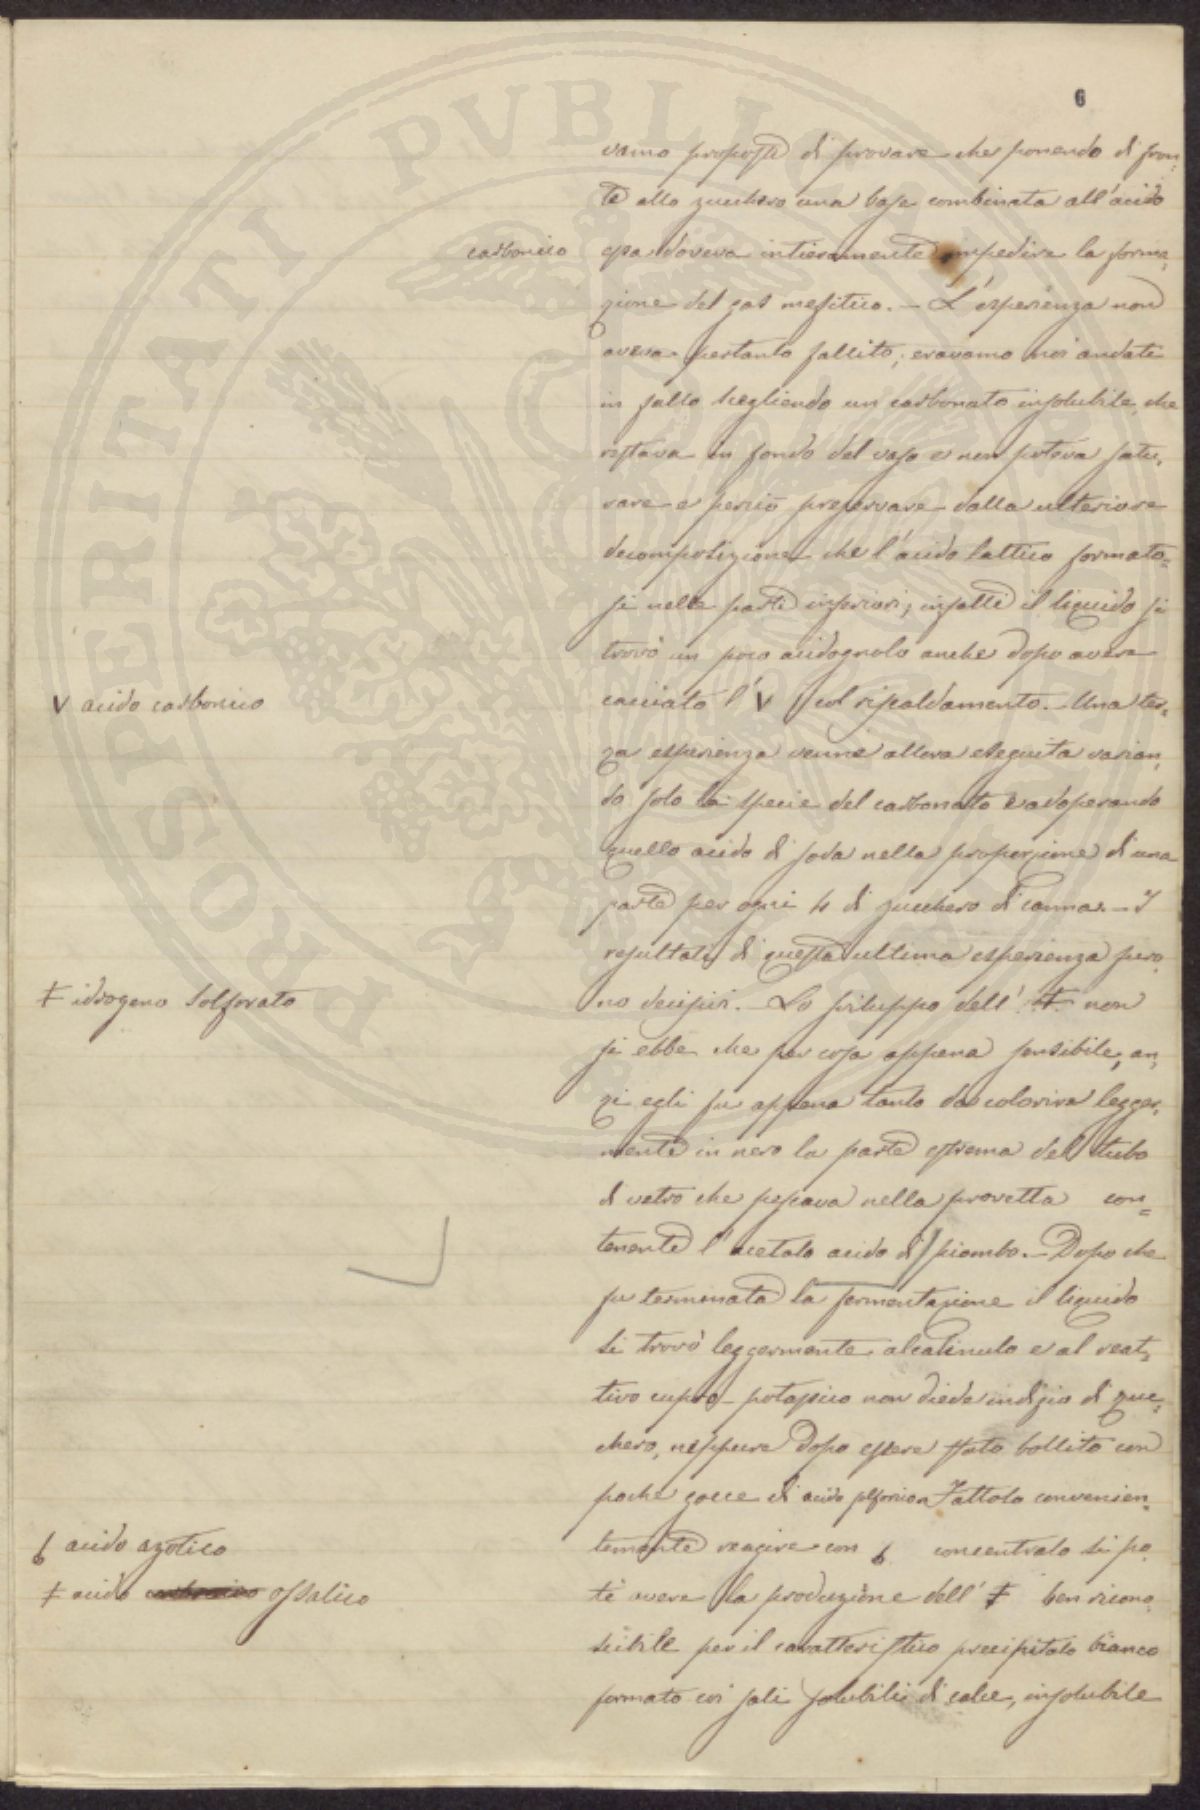 6
vamo proposti di provare che ponendo di fron-
te allo zucchero una base combinata all'acido
carbonico essa doveva intieramente impedire la forma-
zione del gas mefitico. - L'esperienza non
aveva pertanto fallito; eravamo noi andati
in fallo scegliendo un carbonato insolubile, che
restava in fondo del vaso e non poteva satu-
rare e perciò preservare dalla ulteriore
decomposizione che l'acido lattico formato=
si nelle parti inferiori; infatti il liquido si
trovò un poco acidognolo anche dopo avere
V acido carbonico
cacciato l'V col riscaldamento. - Una ter=
za esperienza venne allora eseguita varian-
do solo la specie del carbonato e adoperando
quello acido di soda nella proporzione di una
parte per ogni 4 di zucchero di canna. - I
resultati di questa ultima esperienza furo-
ǂ idrogeno solforato
no decisivi. - Lo sviluppo dell'ǂ non
si ebbe che per cosa appena sensibile, an-
zi egli fu appena tanto da colorire legger-
mente in nero la parte estrema del tubo
di vetro che pescava nella provetta con=
tenente l'acetato acido di piombo. - Dopo che
fu terminata la fermentazione il liquido
si trovò leggermente alcalinulo e al reat-
tivo cupro-potassico non diede indizio di zuc=
chero, neppure dopo essere stato bollito con
poche gocce di acido solforico. Fattolo convenien-
6 acido azotico
temente reagire con 6 concentrato si po-
ǂ acido carbonico ossalico
tè avere la produzione dell'ǂ ben ricono-
scibile per il caratteristico precipitato bianco
formato coi sali solubili di calce, insolubile
PROSPERITATI PVBLICAE